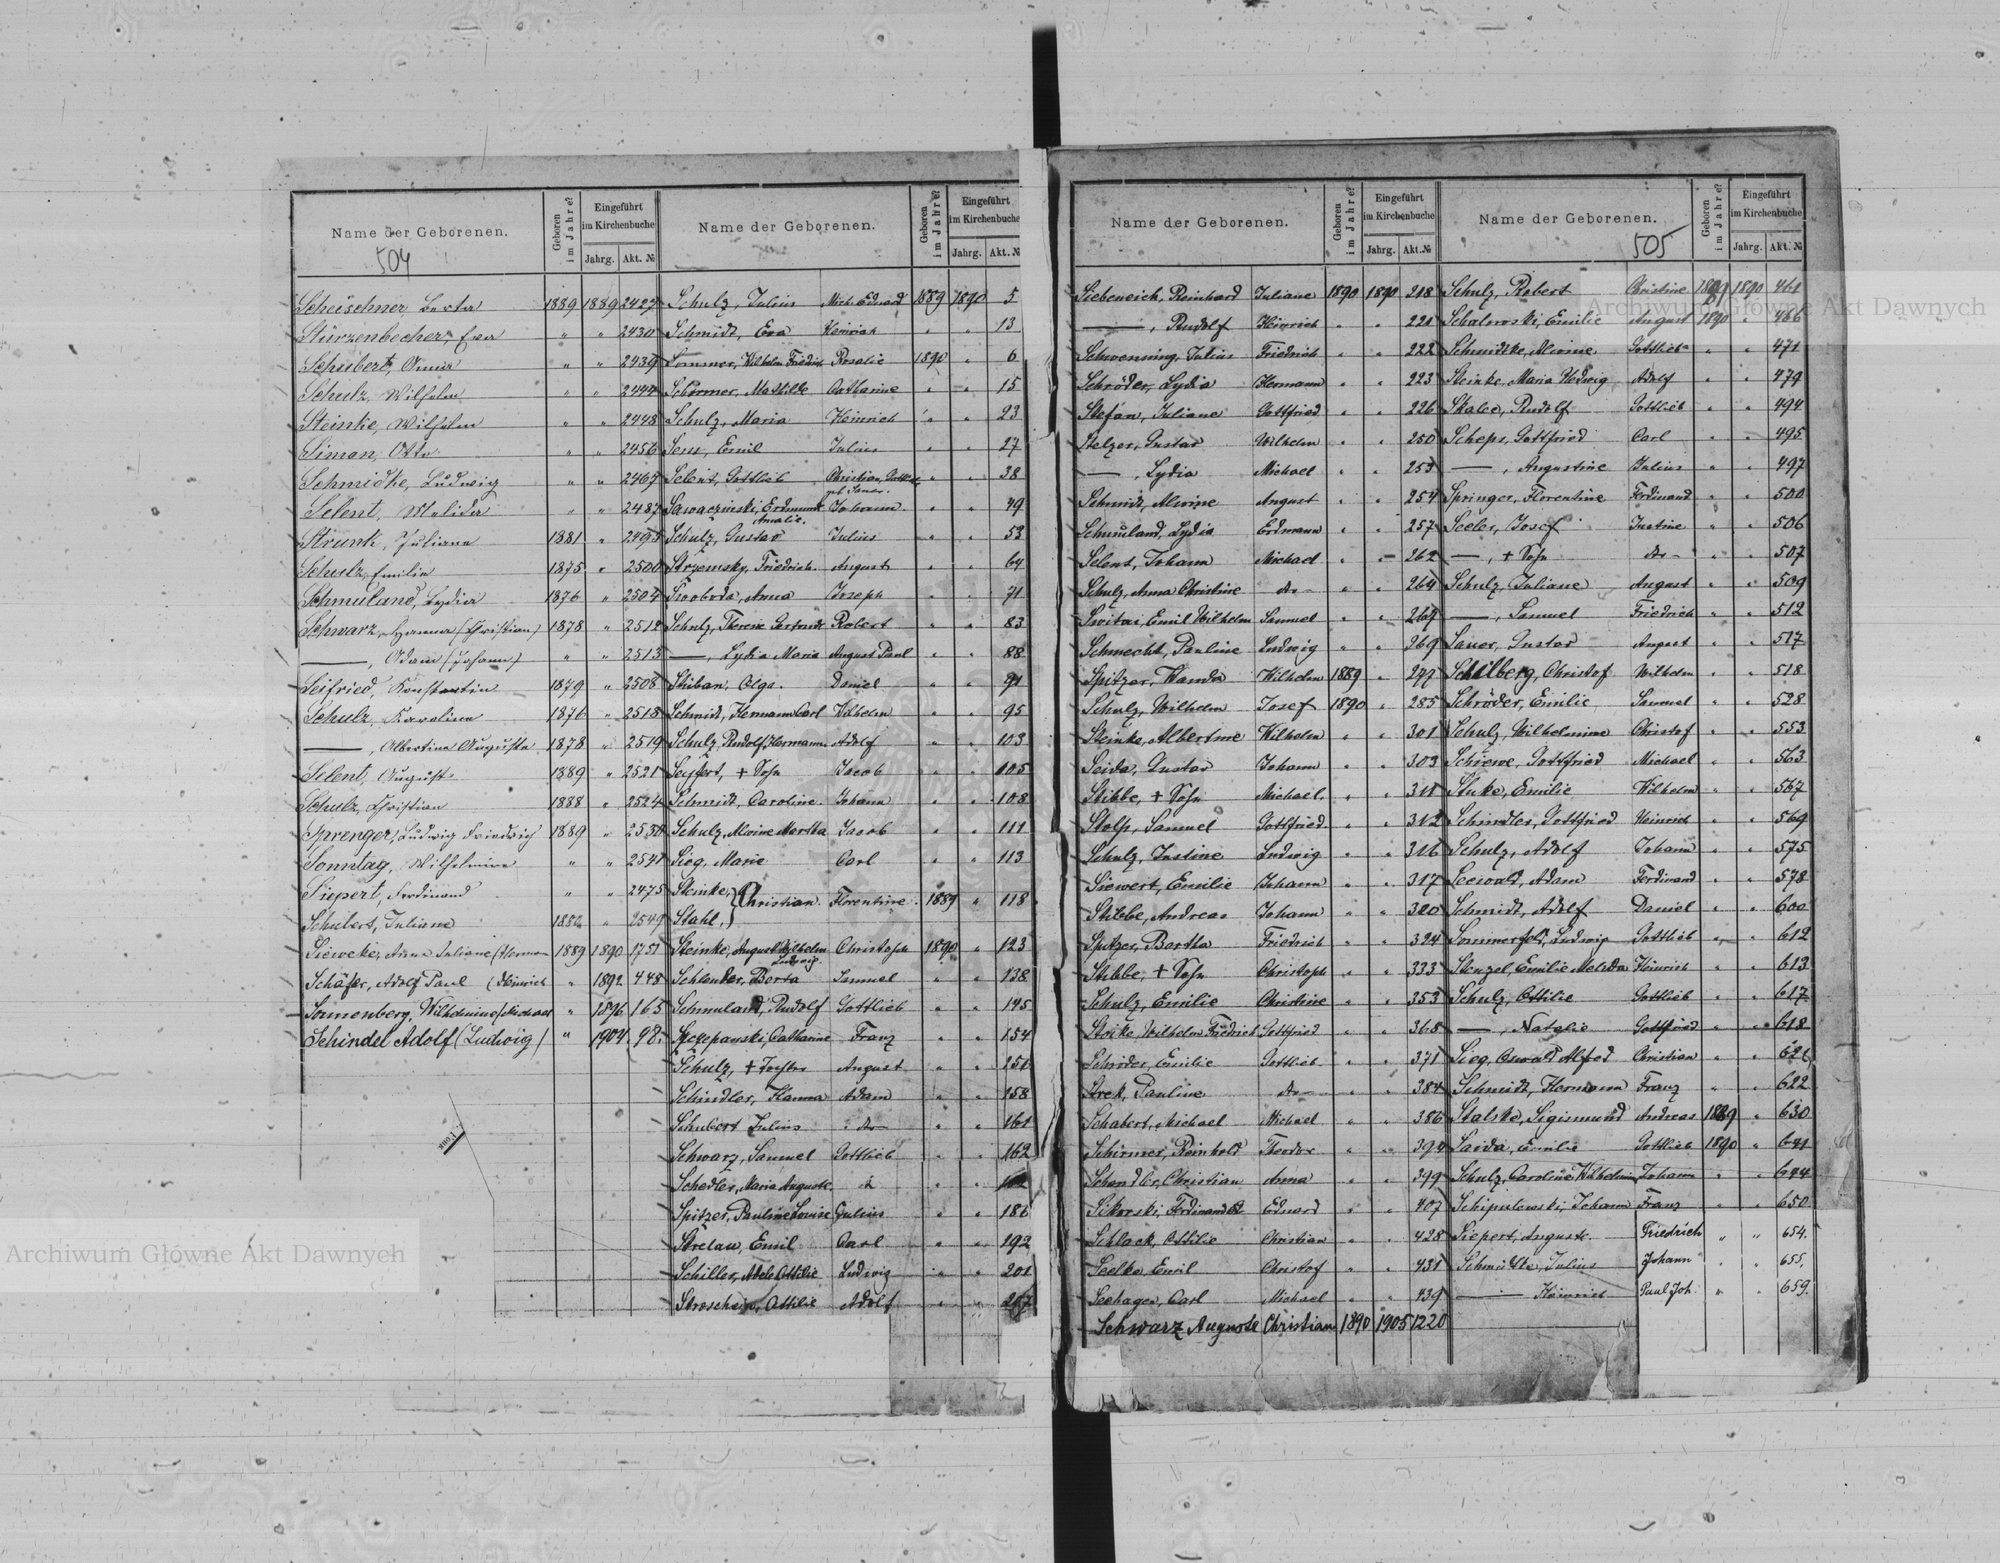 Name der Geborenen.
Geboren im Jahre?
Eingeführt im Kirchenbuche
Jahrg. Akt. №
504
Scheischner, Berta 1889 1889 2427
Stürzenbecher, Eva " " 2430
Schubert, " " 2439
Schulz, Wilhelm " " 2444
Steinke, Wilhelm " " 2448
Siman, Otto " " 2456
Schmidke, Ludwig " " 2467
Selent, Melida " " 2487
Strunk, Juliana 1881 " 2495
Schulz, Emilie 1875 " 2500
Schmuland, Lydia 1876 " 2504
Schwarz, (Christian) 1878 " 2512
—, Adam (Johann) " " 2513
Seifried, Konstantin 1879 " 2508
Schulz, Karolina 1876 " 2518
—, Albertine Augusta 1878 " 2519
Selent, August 1889 " 2521
Schulz, Christian 1888 " 2524
Sprenger, Ludwig Friedrich 1889 " 2530
Sonntag, Wilhelmine " " 2541
Siepert, Ferdinand " " 2475
Schubert, Juliane " 2549
Siewecke, Anna Juliane (Herman 1889 1890 1751
Schäfer, Adolf Paul (Heinrich " 1892 448
Sonnenberg, Wilhelmine (Michael " 1896 165
Schindel Adolf (Ludwig) " 1904 98.
Name der Geborenen.
Geboren im Jahre?
Eingeführt im Kirchenbuche
Jahrg. Akt. №
Schulz, Julius Mich. Eduard 1889 1890 5
Schmidt, Eva Heinrich " " 13
Sommer, Wilhelm Friedrich Rosalie 1890 " 6
Schirmer, Mathilde Catharine " " 15
Schulz, Maria Heinrich " " 23
Senz, Emil Julius " " 27
Selent, Gottlieb Christian, Gottlieb " " 38
Sawaczinski, Erdmund Amalie. Johann " " 49
Schulz, Gustav Julius " " 53
Strzemsky, Friedrich. August " " 64
Swoboda, Anna Joseph " " 71
Schulz, Therese Gertrude Robert " " 83
—, Lydia Maria August Paul " " 88
Stüban, Olga. Daniel " " 91
Schmidt, Hermann Carl Wilhelm " " 95
Schulz, Rudolf Hermann Adolf " " 103
Seifert, + Sohn Jacob " " 105
Schmidt, Caroline. Johann " " 108
Schulz, Alwine Martha Jacob " " 111
Sieg, Marie Carl " " 113
Steinke, Stahl, } Christian. Florentine. 1889 " 118
Steinke, August Wilhelm Ludwig. Christoph 1890 " 123
Schlender, Berta Samuel " " 138
Schmuland, Rudolf Gottlieb " " 145
Szczepanski, Catharine Franz " " 154
Schulz, + Tochter August " " 151
Schindler, Hanna Adam " " 158
Schubert Julius do " " 161
Schwarz, Samuel Gottlieb " " 162
Schedler, Maria Auguste. " "
Spitzer, Pauline Louise Julius " " 186
Strelau, Emil Carl " " 192
Schiller, Adele Ottilie Ludwig " " 201
Stroschein, Ottilie Adolf " "
Name der Geborenen.
Geboren im Jahre?
Eingeführt im Kirchenbuche
Jahrg. Akt. №
Siebeneich, Reinhard Juliane 1890 1890 218
—, Rudolf Heinrich " " 221
Schwenning, Julius Friedrich " " 222
Schröder, Lydia Hermann " " 223
Stefan, Juliane Gottfried " " 226
Stelzer, Gustav Wilhelm " " 250
—, Lydia Michael " " 253
Schmidt, Alwine August " " 254
Schmuland, Lydia Erdmann " " 257
Selent, Johann Michael " " 262
Schulz, Anna Christine do " " 264
Switai, Emil Wilhelm Samuel " "
Schmecht, Pauline Ludwig " " 269
Spitzer, Wanda Wilhelm 1889 " 277
Schulz, Wilhelm Josef 1890 " 285
Steinke, Albertine Wilhelm " " 301
Seida, Gustav Johann " " 303
Stibbe, + Sohn Michael. " " 311
Stolp, Samuel Gottfried " " 312
Schulz, Justine Ludwig " " 316
Siewert, Emilie Johann " " 317
Stibbe, Andreas Johann " " 320
Spitzer, Bertha Friedrich " " 324
Stibbe, + Sohn Christoph " " 333
Schulz, Emilie Christine " " 353
Steike, Wilhelm Friedrich Gottfried " " 368
Schröder, Emilie Gottlieb " " 371
Strek, Pauline do " " 384
Schabert, Michael Michael " " 386
Schirmer, Reinhold Theodor " " 394
Schendler, Christian Anna " " 399
Sikorski, Ferdinand Eduard " " 407
Schlack, Ottilie Christian " " 428
Seelke, Emil Christof " " 431
Seehagen, Carl Michael " " 439
Schwarz Auguste Christian 1890 1905 1220
Name der Geborenen.
505
Geboren im Jahre?
Eingeführt im Kirchenbuche
Jahrg. Akt. №
Schulz, Robert Christine 1889 1890 461
Schalwoski, Emilie August 1890 " 466
Schmidtke, Alwine. Gottlieb " " 471
Steinke, Maria Hedwig Adolf " " 479
Skalei, Rudolf Gottlieb " " 494
Scheps, Gottfried Carl " " 495
—, Augustine Julius " " 497
Springer, Florentine Ferdinand " " 500
Seeler, Josef Justine " " 506
—, + Sohn do " " 507
Schulz, Juliane August " " 509
—, Samuel Friedrich " " 512
Sauer, Gustav August " " 517
Schilberg, Christof Wilhelm " " 518
Schröder, Emilie Samuel " " 528
Schulz, Wilhelmine Christof " " 553
Schiewe, Gottfried Michael " " 563
Stuke, Emilie Wilhelm " " 567
Schindler, Gottfried Heinrich " " 569
Schulz, Adolf Johann " " 575
Seewald, Adam Ferdinand " " 578
Schmidt, Adolf Daniel " " 600
Sommerfeld, Ludwig Gottlieb " " 612
Stenzel, Emilie Melida Heinrich " " 613
Schulz, Ottilie Gottlieb " " 617
—, Natalie Gottfried " " 618
Sieg, Oswald Alfred Christian " " 621
Schmidt, Hermann Franz " " 622
Stalske, Sigismund Andreas 1889 " 630
Saida, Emilie Gottlieb 1890 " 641
Schulz, Caroline Wilhelmine Johann " " 644
Schipulewski, Johann Franz " " 650
Siepert, Auguste. Friedrich " " 654.
Schmidtke, Julius Johann " " 655.
— Heinrich Paul Joh. " " 659.
Archiwum Główne Akt Dawnych
Archiwum Główne Akt Dawnych